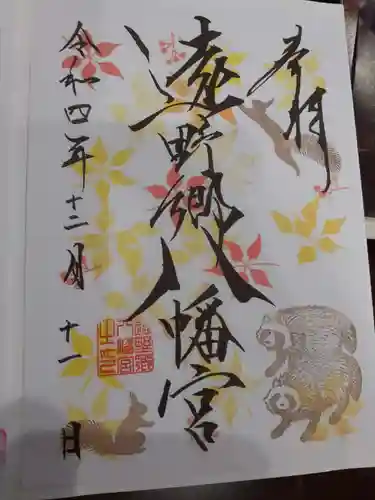 奉拝
遠野郷八幡宮
令和四年十二月十一日